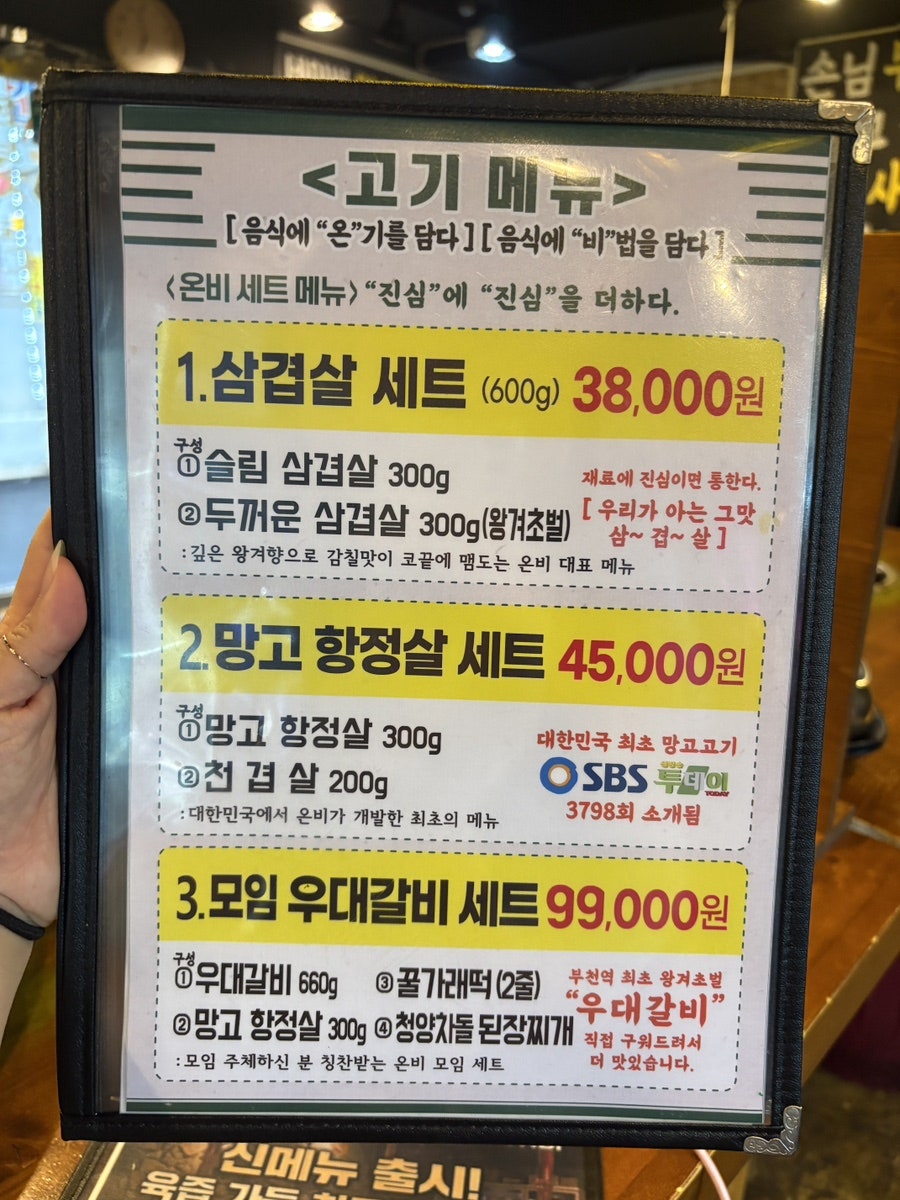 손님
사
<고기 메뉴>
[ 음식에 “온”기를 담다 ] [ 음식에 “비”법을 담다 ]
<온비 세트 메뉴> “진심”에 “진심”을 더하다.
1.삼겹살 세트 (600g) 38,000원
구성
① 슬림 삼겹살 300g
② 두꺼운 삼겹살 300g(왕겨초벌)
:깊은 왕겨향으로 감칠맛이 코끝에 맴도는 온비 대표 메뉴
재료에 진심이면 통한다.
[ 우리가 아는 그맛
삼~ 겹~ 살 ]
2.망고 항정살 세트 45,000원
구성
① 망고 항정살 300g
② 천 겹 살 200g
:대한민국에서 온비가 개발한 최초의 메뉴
대한민국 최초 망고고기
SBS 생방송 투데이 TODAY
3798회 소개됨
3.모임 우대갈비 세트 99,000원
구성
① 우대갈비 660g ③ 꿀가래떡 (2줄)
② 망고 항정살 300g ④ 청양차돌 된장찌개
:모임 주체하신 분 칭찬받는 온비 모임 세트
부천역 최초 왕겨초벌
“우대갈비”
직접 구워드려서
더 맛있습니다.
신메뉴 출시!
육즙 가득